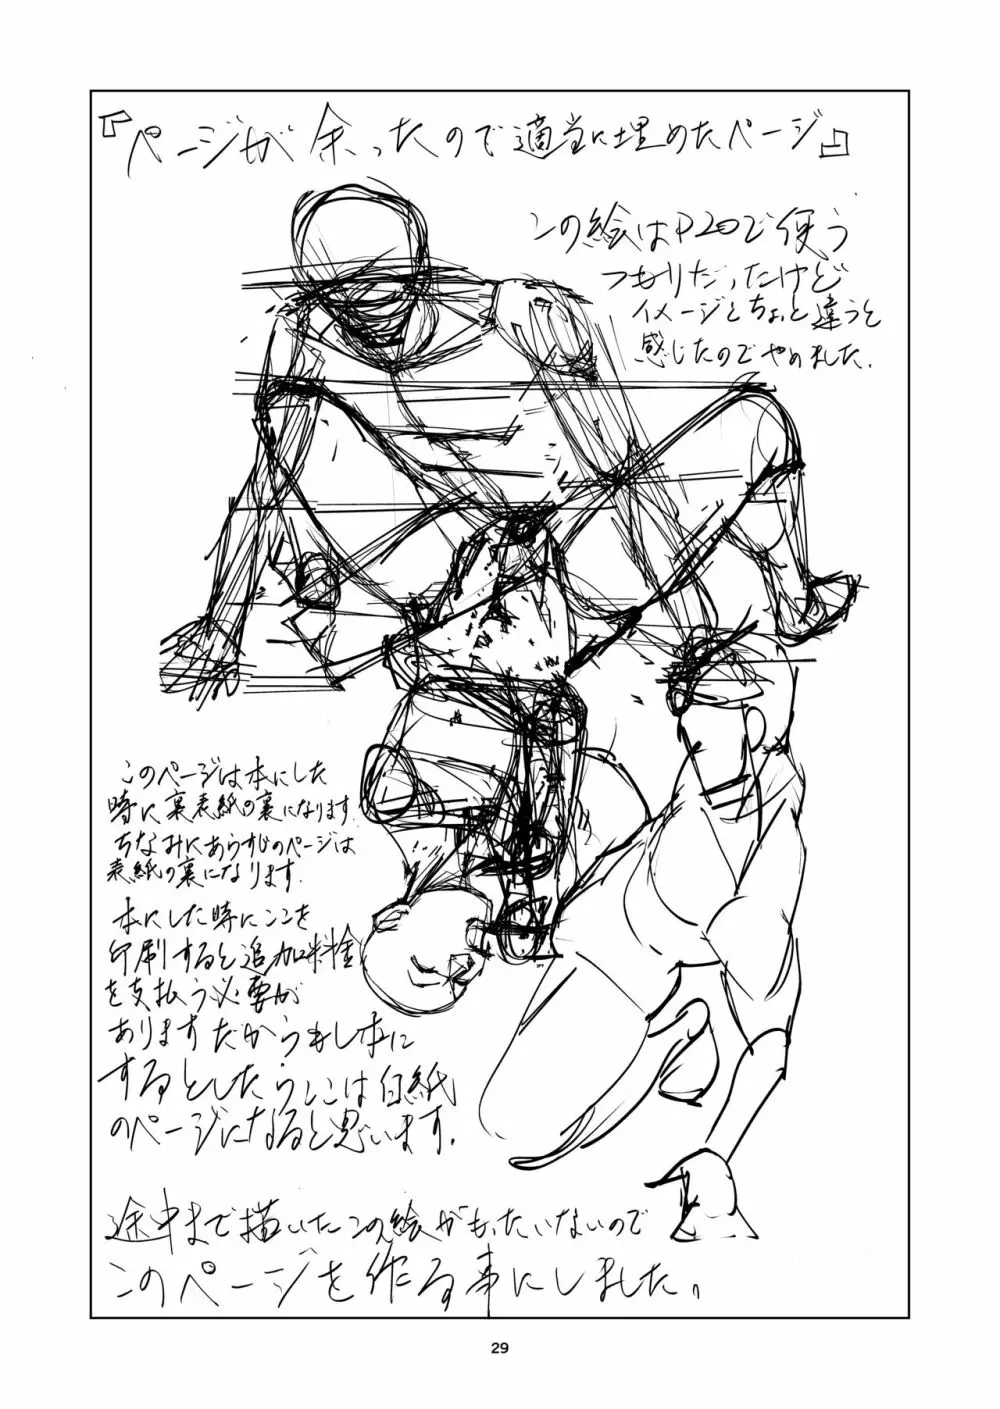 『ページが余ったので適当に埋めたページ』
この絵はP20で使う
つもりだったけど
イメージとちょっと違うと
感じたのでやめました.
このページは本にした
時に裏表紙の裏になります.
ちなみにあらすじのページは
表紙の裏になります.
本にした時にここを
印刷すると追加料金
を支払う必要が
ありますだからもし本に
するとしたらここは白紙
のページになると思います.
途中まで描いたこの絵がもったいないので
このページを作る事にしました。
29